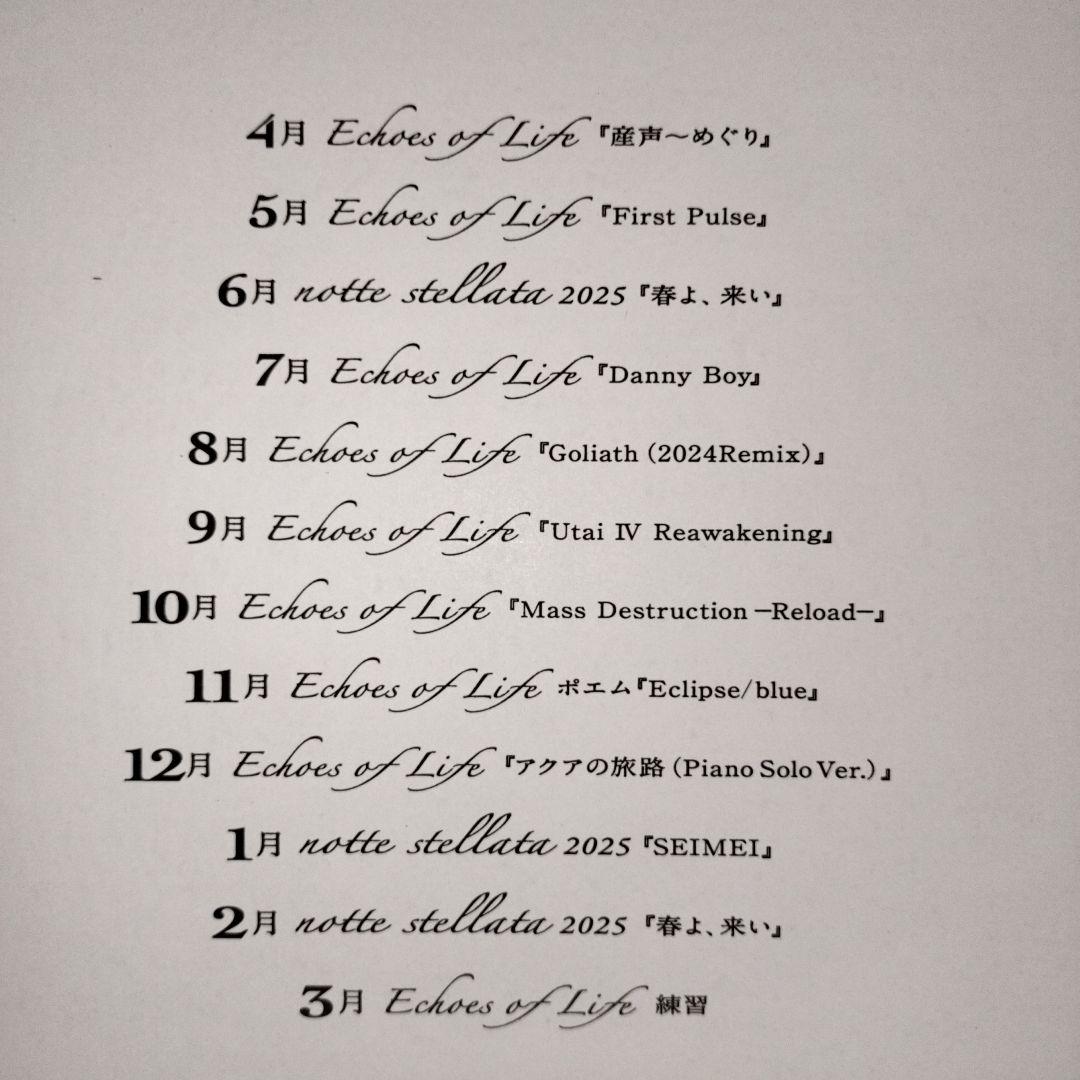 4月 Echoes of Life『産声～めぐり』
5月 Echoes of Life『First Pulse』
6月 notte stellata 2025『春よ、来い』
7月 Echoes of Life『Danny Boy』
8月 Echoes of Life『Goliath（2024Remix）』
9月 Echoes of Life『Utai Ⅳ Reawakening』
10月 Echoes of Life『Mass Destruction −Reload−』
11月 Echoes of Life ポエム『Eclipse/blue』
12月 Echoes of Life『アクアの旅路（Piano Solo Ver.）』
1月 notte stellata 2025『SEIMEI』
2月 notte stellata 2025『春よ、来い』
3月 Echoes of Life 練習